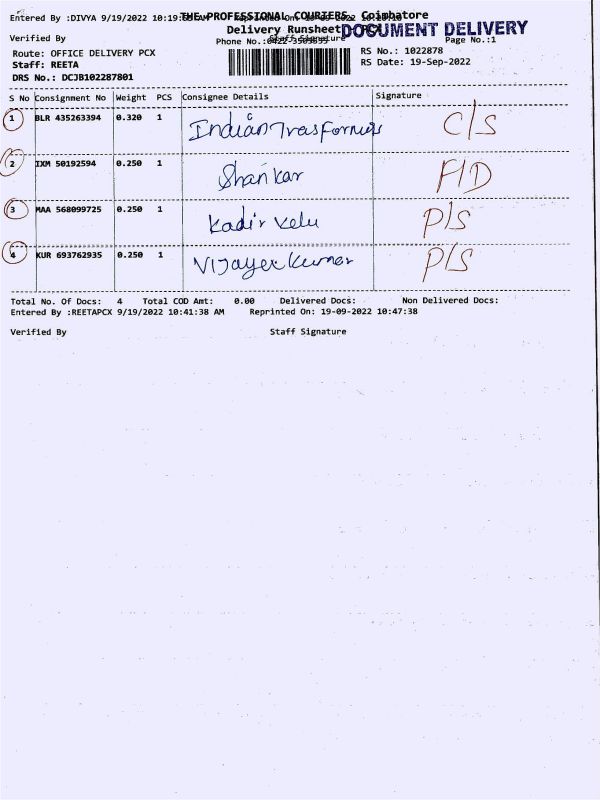 Entered By :DIVYA 9/19/2022 10:19:
THE PROFESSIONAL COURIERS, Coimbatore
Delivery Runsheet
DOCUMENT DELIVERY
Verified By
Staff Signature
Phone No.:0422
Page No.:1
Route: OFFICE DELIVERY PCX
RS No.: 1022878
Staff: REETA
RS Date: 19-Sep-2022
DRS No.: DCJB102287801
S No Consignment No Weight PCS Consignee Details Signature
1 BLR 435263394 0.320 1 Indian Trasformers C/S
2 IXM 50192594 0.250 1 Shankar F/D
3 MAA 568099725 0.250 1 Kadir Kelu P/S
4 KUR 693762935 0.250 1 Vijayee Kumar P/S
Total No. Of Docs: 4 Total COD Amt: 0.00 Delivered Docs: Non Delivered Docs:
Entered By :REETAPCX 9/19/2022 10:41:38 AM Reprinted On: 19-09-2022 10:47:38
Verified By Staff Signature